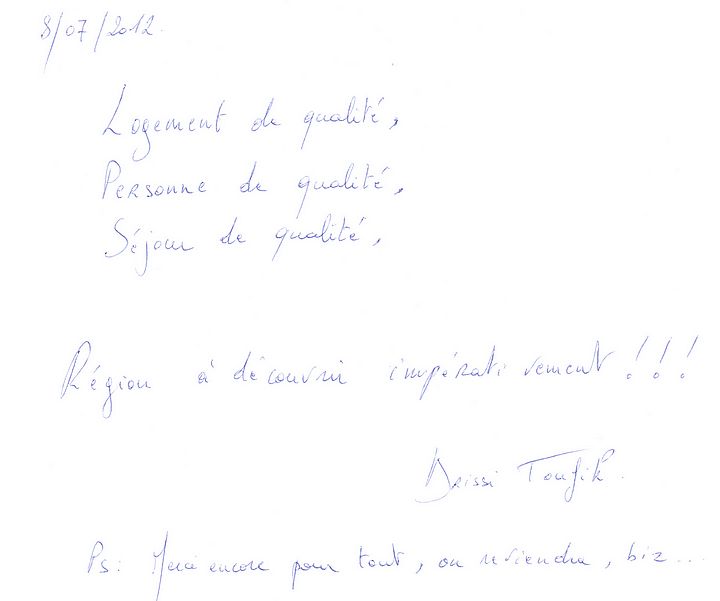 8/07/2012.
Logement de qualité,
Personne de qualité,
Séjour de qualité,
Région à découvrir impérativement !!!
Drissi Toufik.
Ps: Merci encore pour tout, on reviendra, biz...